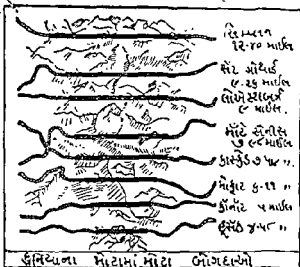 સિમ્પલન
૧૨-૪૦ માઈલ
સેંટ ગોથાર્ડ
૯-૨૬ માઈલ
લોએસ્ટબર્ગ
૯ માઈલ
મોંટ સેનીસ
૭-૯૮ માઈલ
કાસ્કેડ ૭-૫૪ ”
મોફાટ ૬-૧૧ ”
કોનોટ ૫ માઈલ
૪-૫૮ ”
દુનિયાના મોટામાં મોટા બોગદાઓ